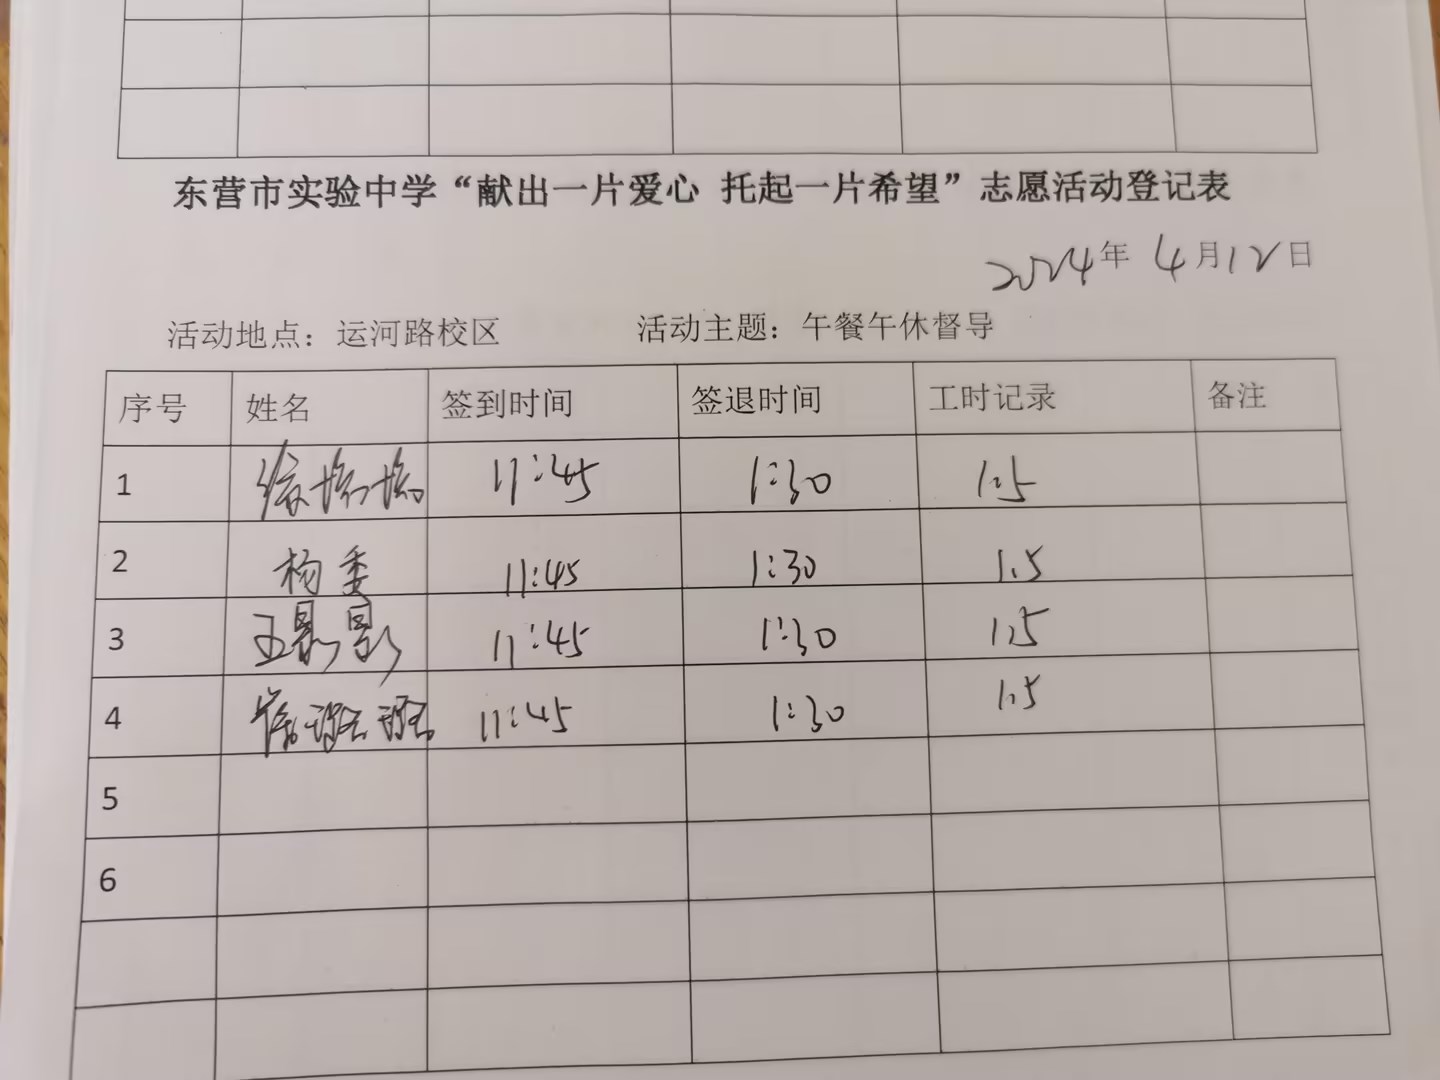 东营市实验中学“献出一片爱心 托起一片希望”志愿活动登记表
2024年 4月12日
活动地点：运河路校区 活动主题：午餐午休督导
序号 姓名 签到时间 签退时间 工时记录 备注
1 11:45 1:30 1.5
2 杨委 11:45 1:30 1.5
3 王影影 11:45 1:30 1.5
4 崔 11:45 1:30 1.5
5
6